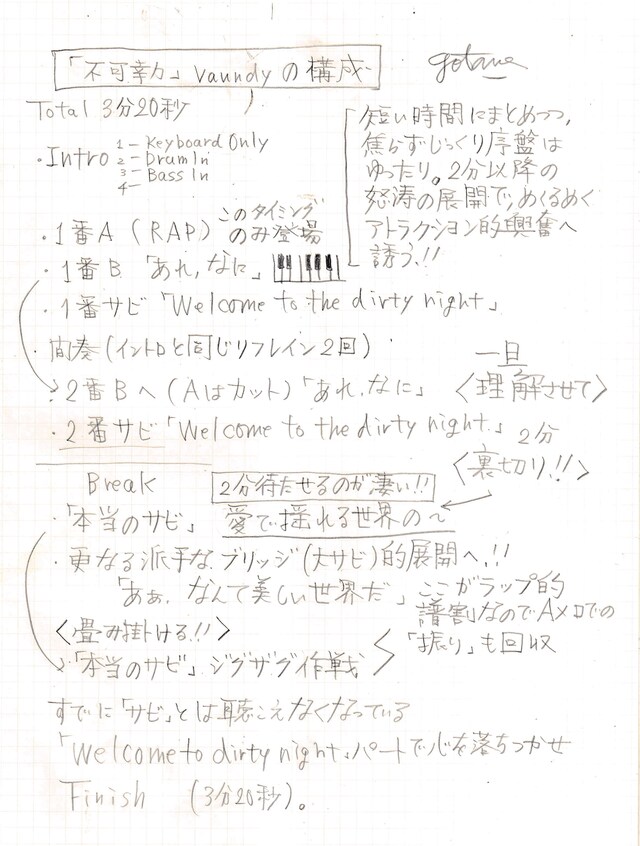 「不可幸力」Vaundyの構成
gotane
Total 3分20秒
・Intro
1-Keyboard Only
2-Drum In
3-Bass In
4-
短い時間にまとめつつ、
焦らずじっくり序盤は
ゆったり。2分以降の
怒涛の展開で、めくるめく
アトラクション的興奮へ
誘う!!
・1番A (RAP) このタイミングのみ登場
・1番B 「あれ,なに」
・1番サビ「Welcome to the dirty night」
・間奏(イントロと同じリフレイン2回)
・2番Bへ(Aはカット)「あれ,なに」
一旦
〈理解させて〉
・2番サビ「Welcome to the dirty night」
2分
〈裏切り!!〉
Break
2分待たせるのが凄い!!
・「本当のサビ」 愛で揺れる世界の〜
・更なる派手な、ブリッジ(大サビ)的展開へ!!
「あぁ、なんて美しい世界だ」
ここがラップ的
譜割なのでAメロでの
「振り」も回収
〈畳み掛ける!!〉
・「本当のサビ」ジグザグ作戦
すでに「サビ」とは聴こえなくなっている
「Welcome to dirty night」パートで心を落ちつかせ
Finish (3分20秒)。